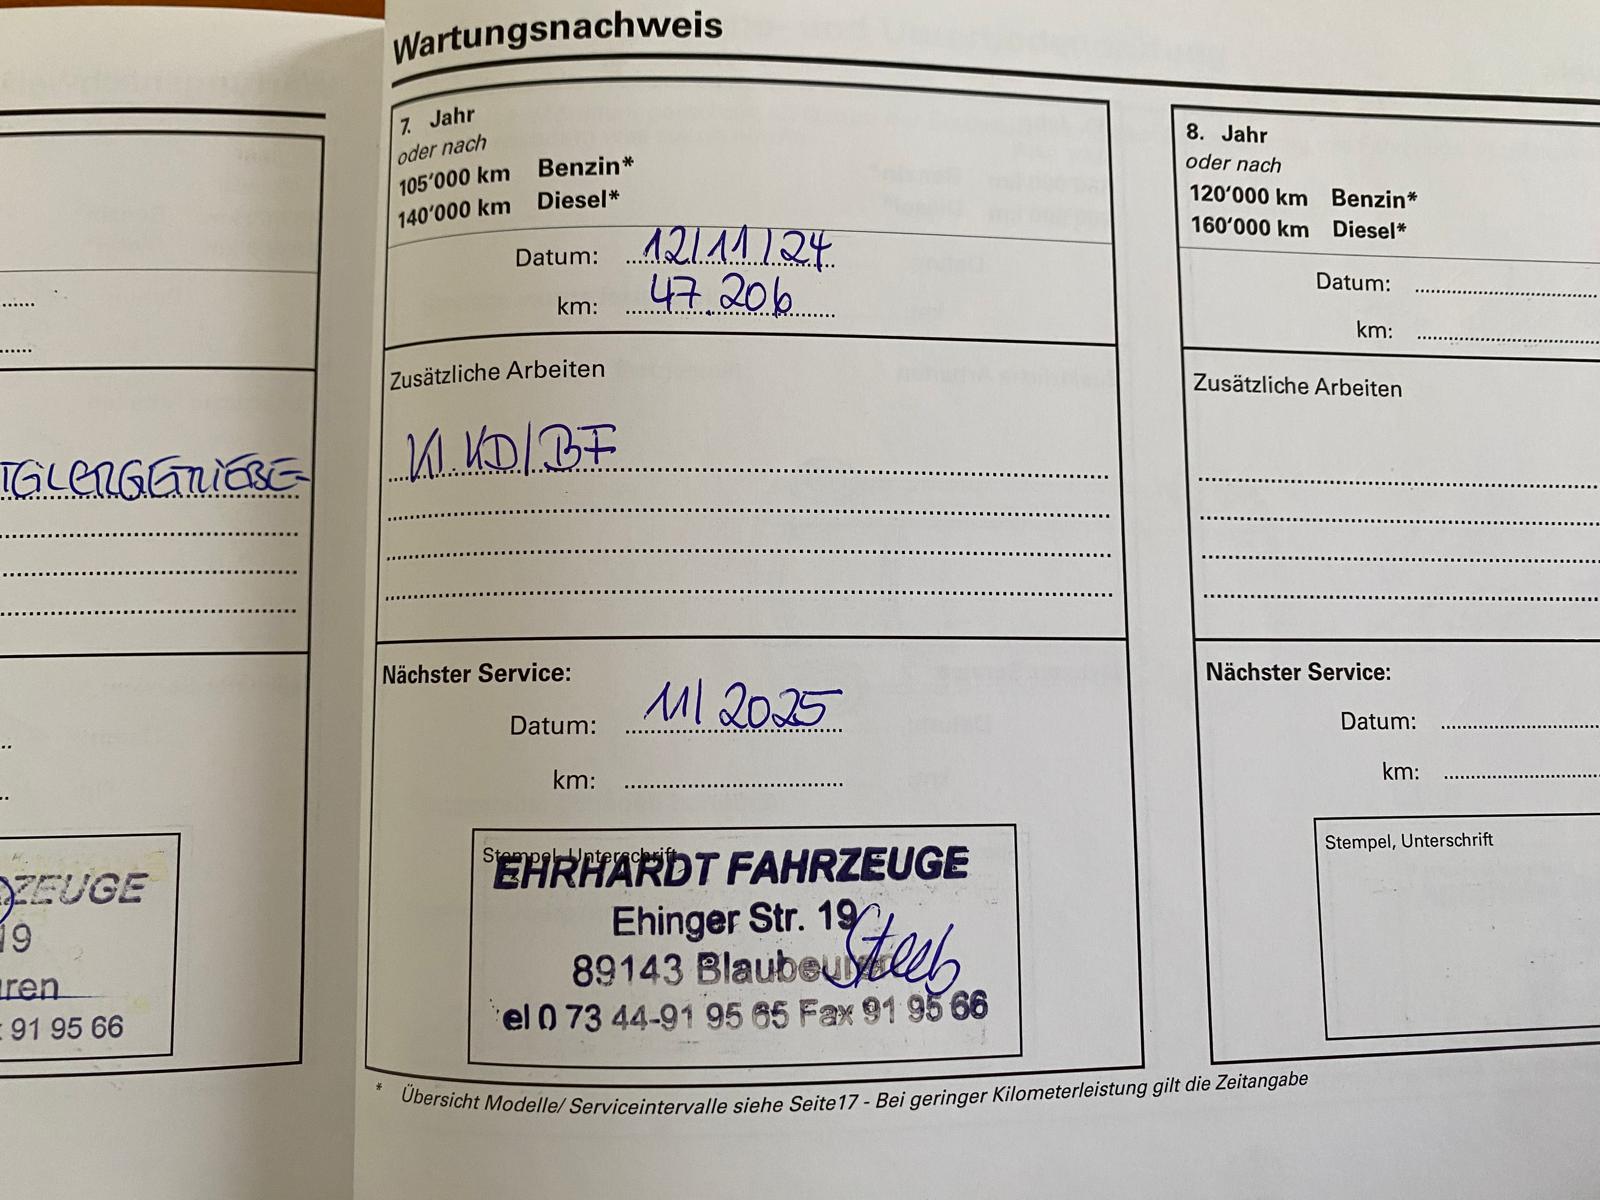 Wartungsnachweis
TEILERGETRIEBE-
ZEUGE
19
ren
91 95 66
7. Jahr
oder nach
105'000 km Benzin*
140'000 km Diesel*
Datum: 12/11/24
km: 47.206
Zusätzliche Arbeiten
Kl. KD/BF
Nächster Service:
Datum: 11/2025
km:
Stempel, Unterschrift
EHRHARDT FAHRZEUGE
Ehinger Str. 19
89143 Blaubeuren
el 0 73 44-91 95 65 Fax 91 95 66
Steeb
8. Jahr
oder nach
120'000 km Benzin*
160'000 km Diesel*
Datum:
km:
Zusätzliche Arbeiten
Nächster Service:
Datum:
km:
Stempel, Unterschrift
* Übersicht Modelle/ Serviceintervalle siehe Seite17 - Bei geringer Kilometerleistung gilt die Zeitangabe